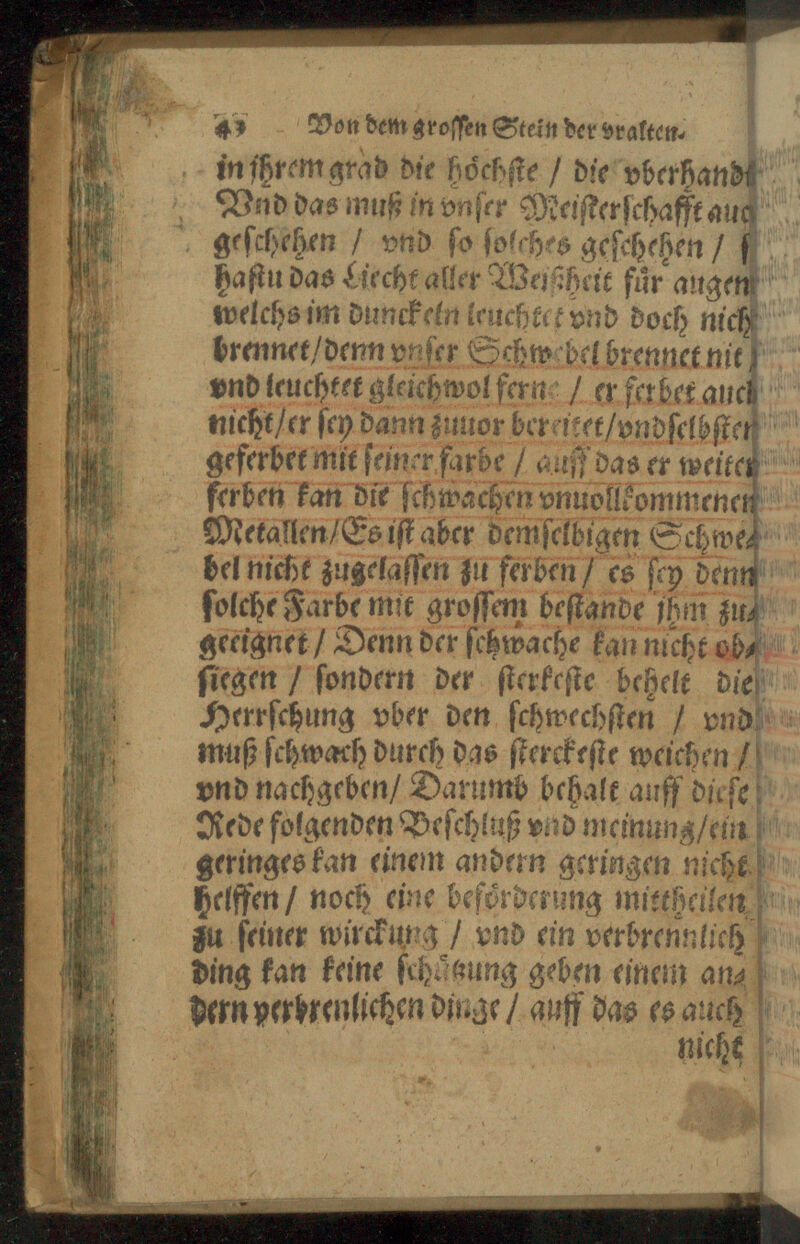 42 Von dem groſſen Stein der vralten.
in jhrem grad die hoͤchſte / die vberhandt
Vnd das muß in vnſer Meiſterſchafft auch
geſchehen / vnd ſo ſolches geſchehen /
haſtu das Liecht aller Weißheit fuͤr augen
welchs im dunckeln leuchtet vnd doch nich
brennet/denn vnſer Schwebel brennet nit
vnd leuchtet gleichwol ferne / er ferbet auch
nicht/er ſey dann zuuor bereitet/vnd ſelbſten
geferbet mit ſeiner farbe / auff das er weiter
ferben kan die ſchwachen vnuollkommenen
Metallen/Es iſt aber demſelbigen Schwe⸗
bel nicht zugelaſſen zu ferben / es ſey denn
ſolche Farbe mit groſſem beſtande jhm zu⸗
geeignet / Denn der ſchwache kan nicht ob⸗
ſiegen / ſondern der ſterkeſte behelt die
Herrſchung vber den ſchwechſten / vnd
muß ſchwach durch das ſterckeſte weichen /
vnd nachgeben/ Darumb behalt auff dieſe
Rede folgenden Beſchluß vnd meinung/ein
geringes kan einem andern geringen nicht
helffen / noch eine befoͤrderung mittheilen
zu ſeiner wirckung / vnd ein verbrennlich
ding kan keine ſchuͤtzung geben einem an⸗
dern verbrenlichen dinge / auff das es auch
nicht